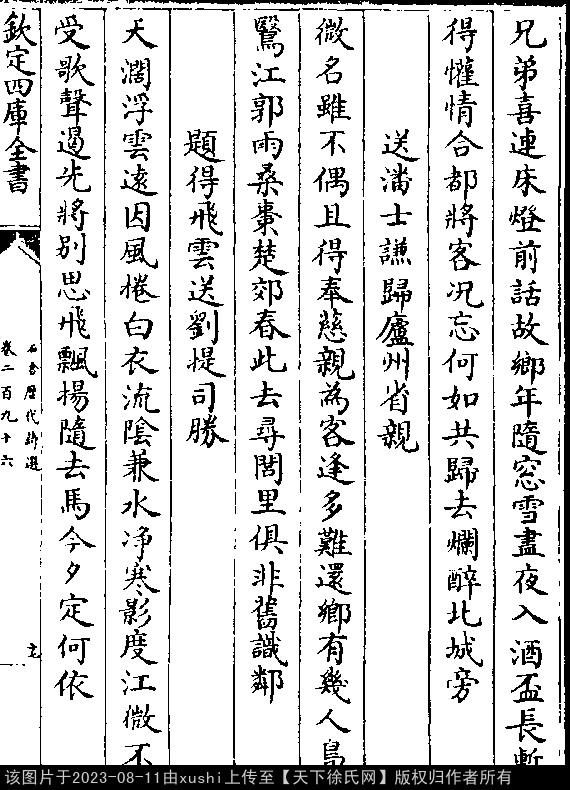 兄弟喜連床燈前話故鄉年隨窓雪盡夜入酒盃長暫
得懽情合都將客况忘何如共歸去爛醉北城旁
送潘士謙歸廬州省親
微名雖不偶且得奉慈親為客逢多難還鄉有幾人鳧
鷖江郭雨桑棗楚郊春此去尋閭里俱非舊識鄰
題得飛雲送劉提司勝
天濶浮雲遠因風捲白衣流陰兼水净寒影度江微不
受歌聲遏光將别思飛飄揚隨去馬今夕定何依
欽定四庫全書
石倉歴代詩選
卷二百九十六
該图片于2023-08-11由xushi上传至【天下徐氏网】版权归作者所有